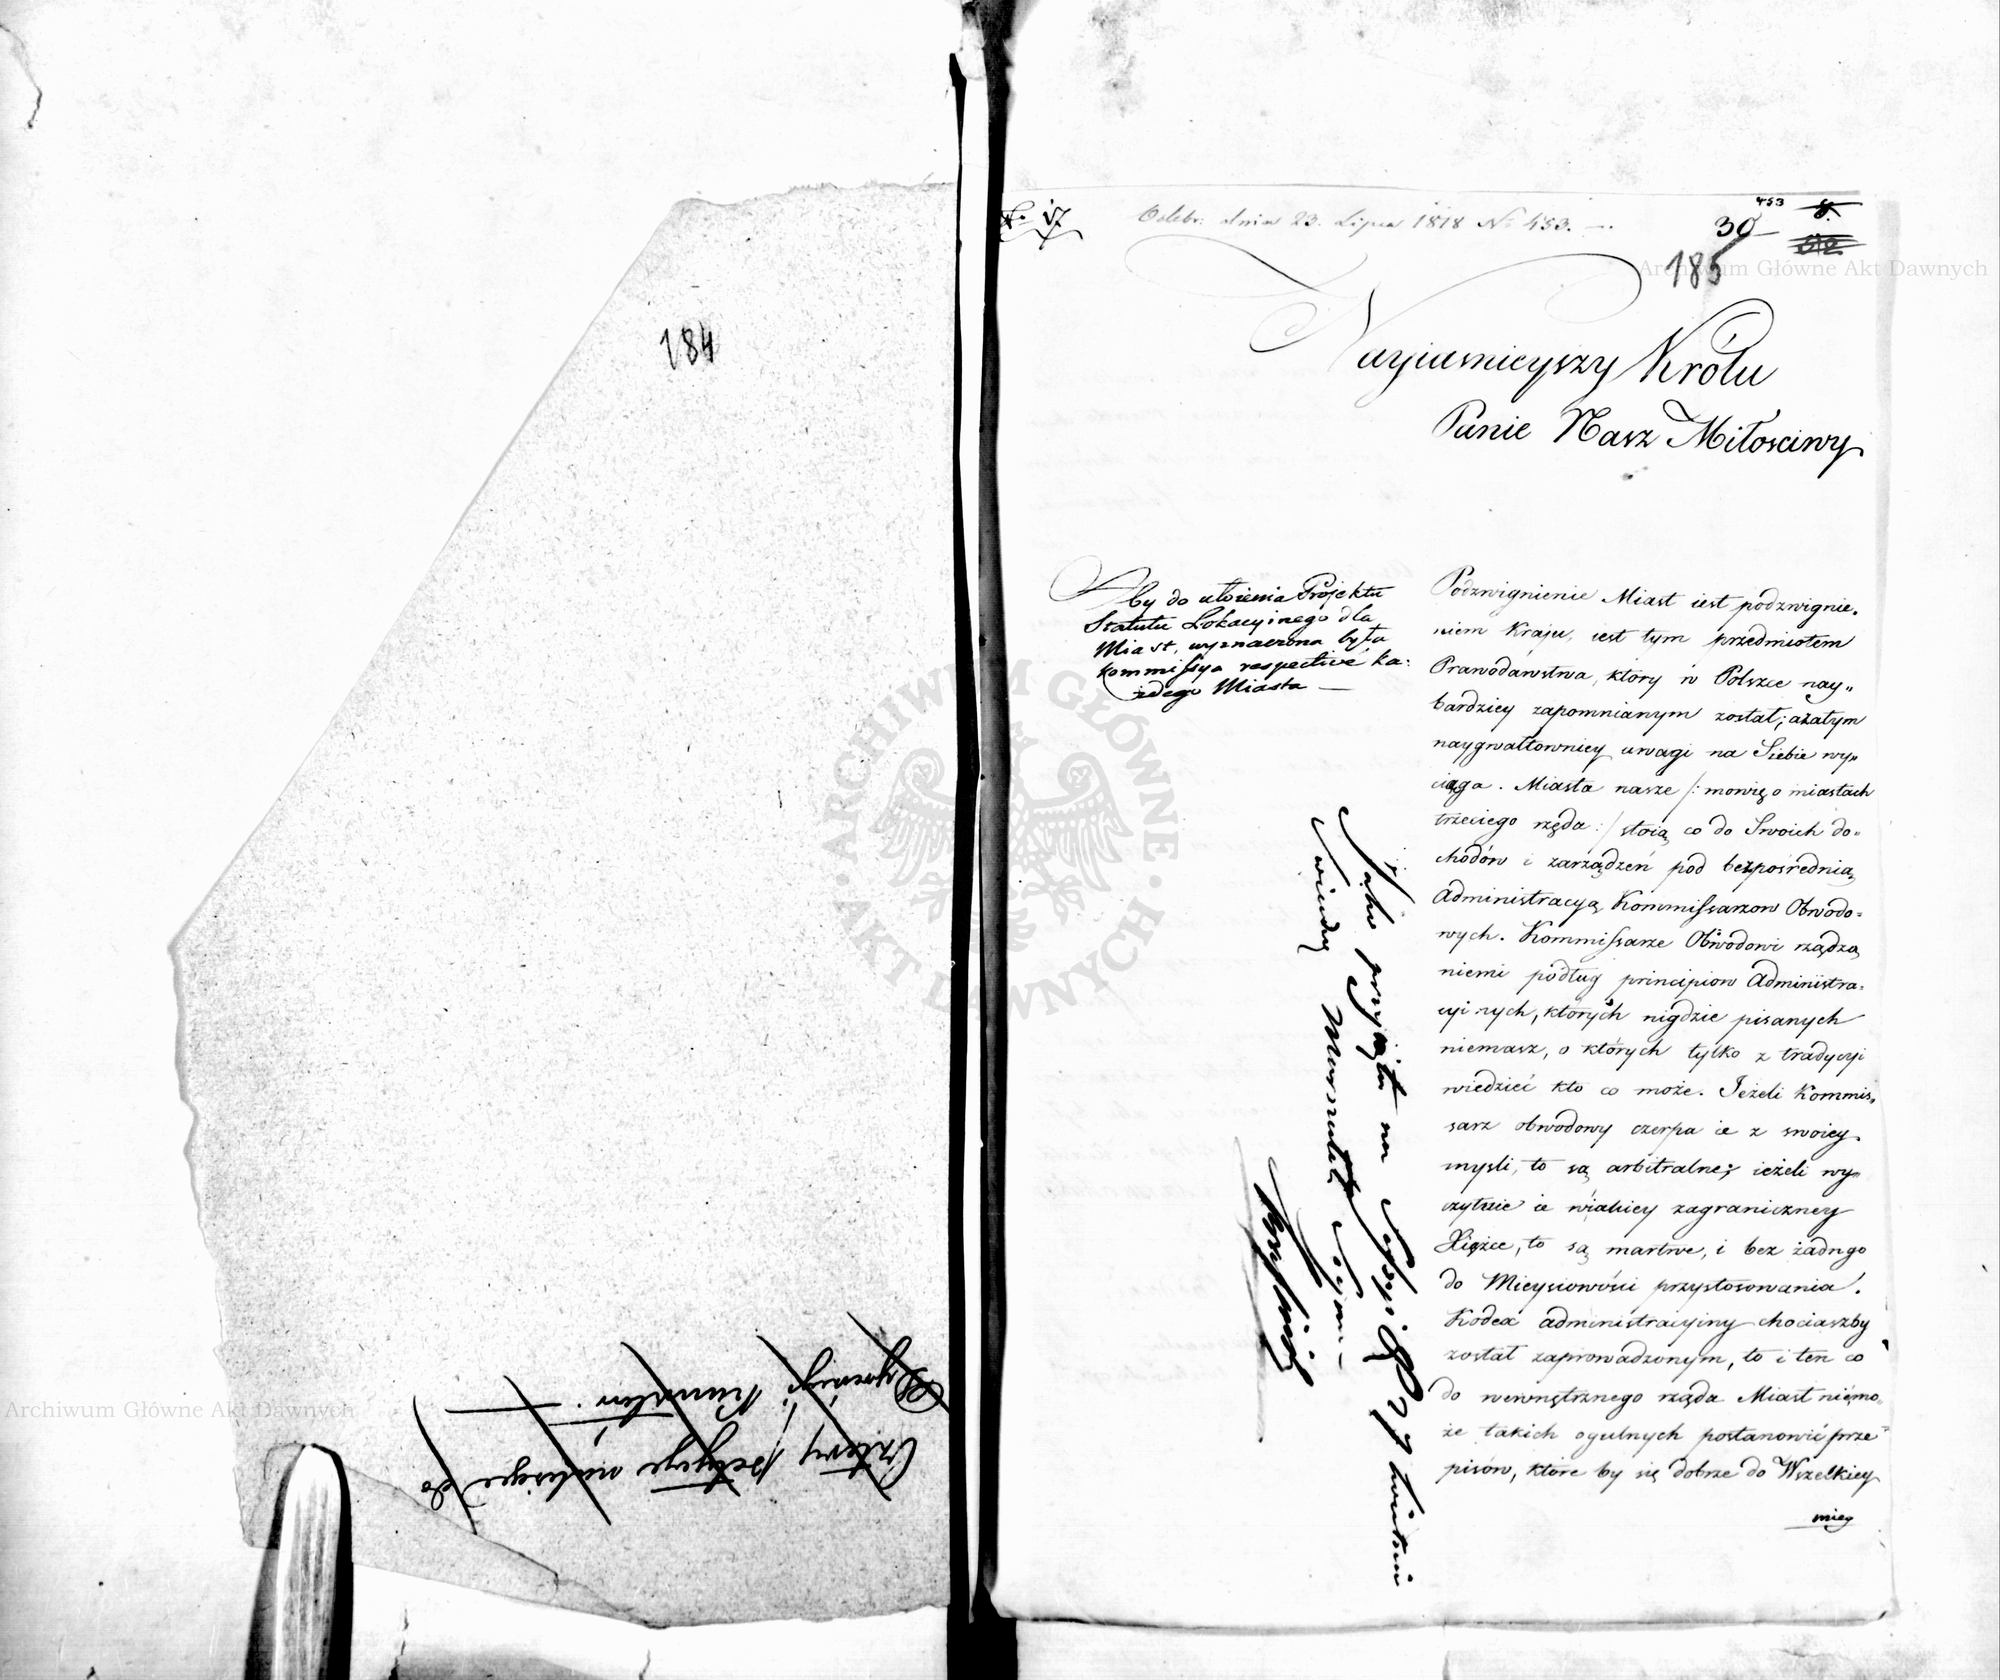 184
Cztery petycye należące do
L. 17
Odebr: dnia 23. Lipca 1818 No 453. —
453
30
185
Nayiasnieyszy Królu
Panie Nasz Miłosciwy
Aby do ułożenia Projektu
Statutu Lokacyinego dla
Miast, wyznaczona była
Kommissya respectivé ka:
żdego Miasta —
Podzwignienie Miast iest podzwignie„
niem Kraju, iest tym przedmiotem
Prawodawstwa, który w Polszcze nay„
bardziey zapomnianym został; azatym
naygwałtowniey uwagi na Siebie wy„
ciąga. Miasta nasze /: mowię o miastach
trzeciego rzędu :/ stoią co do Swoich do„
chodów i zarządzeń pod bezpośrednią
Administracyą Kommissarzow Obwodo„
wych. Kommissarze Obwodowi rządzą
niemi podług principiow Administra„
cyinych, których nigdzie pisanych
niemasz, o których tylko z tradycyi
wiedzieć kto co może. Jeżeli Kommis„
sarz obwodowy czerpa ie z swoiey
mysli, to są arbitralne; ieżeli wy„
czytuie ie wiakiey zagraniczney
Xiążce, to są martwe, i bez żadngo
do Mieyscowości przystosowania.
Kodex administracyiny chociaszby
został zaprowadzonym, to i ten co
do wewnętrznego rządu Miast niemo„
że takich ogulnych postanowić prze„
pisów, które by się dobrze do Wszelkiey
miey
Jako przyjęta na Sessyi
wiedzy Marszałek Seym:
Archiwum Główne Akt Dawnych
Archiwum Główne Akt Dawnych
ARCHIWUM GŁÓWNE · AKT DAWNYCH ·